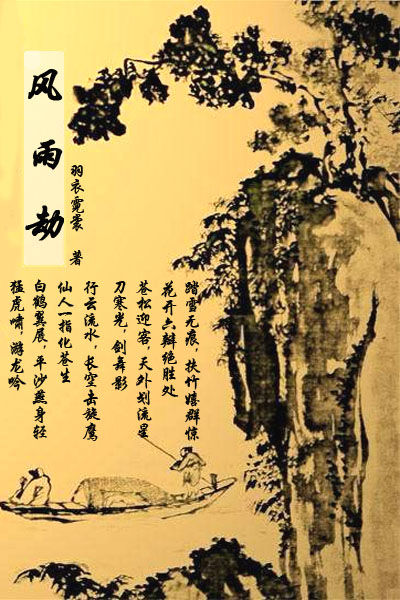 风雨劫
羽衣霓裳 著
踏雪无痕，扶竹嬉群惊
花开六辩绝胜处
苍松迎客，天外划流星
刀寒光，剑舞影
行云流水，长空击旋鹰
仙人一指化苍生
白鹤翼展，平沙燕身轻
猛虎啸，游龙吟